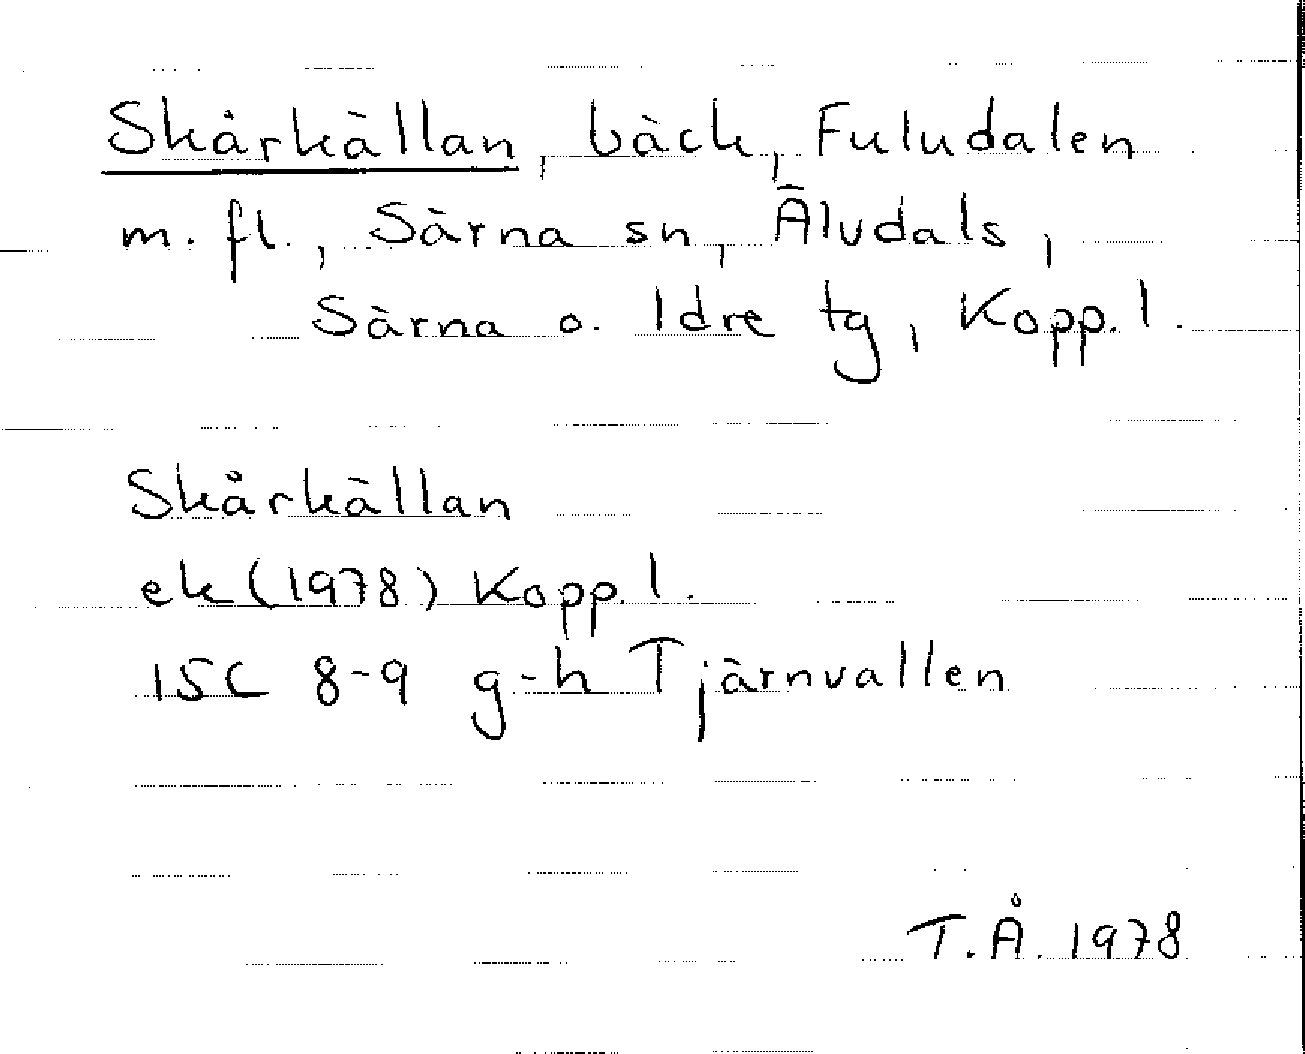 Skårkällan, bäck, Fuludalen
m. fl., Särna sn, Älvdals,
Särna o. Idre tg, Kopp. l.
Skårkällan
ek (1978) Kopp. l.
15C 8-9 g-h Tjärnvallen
T.Å. 1978